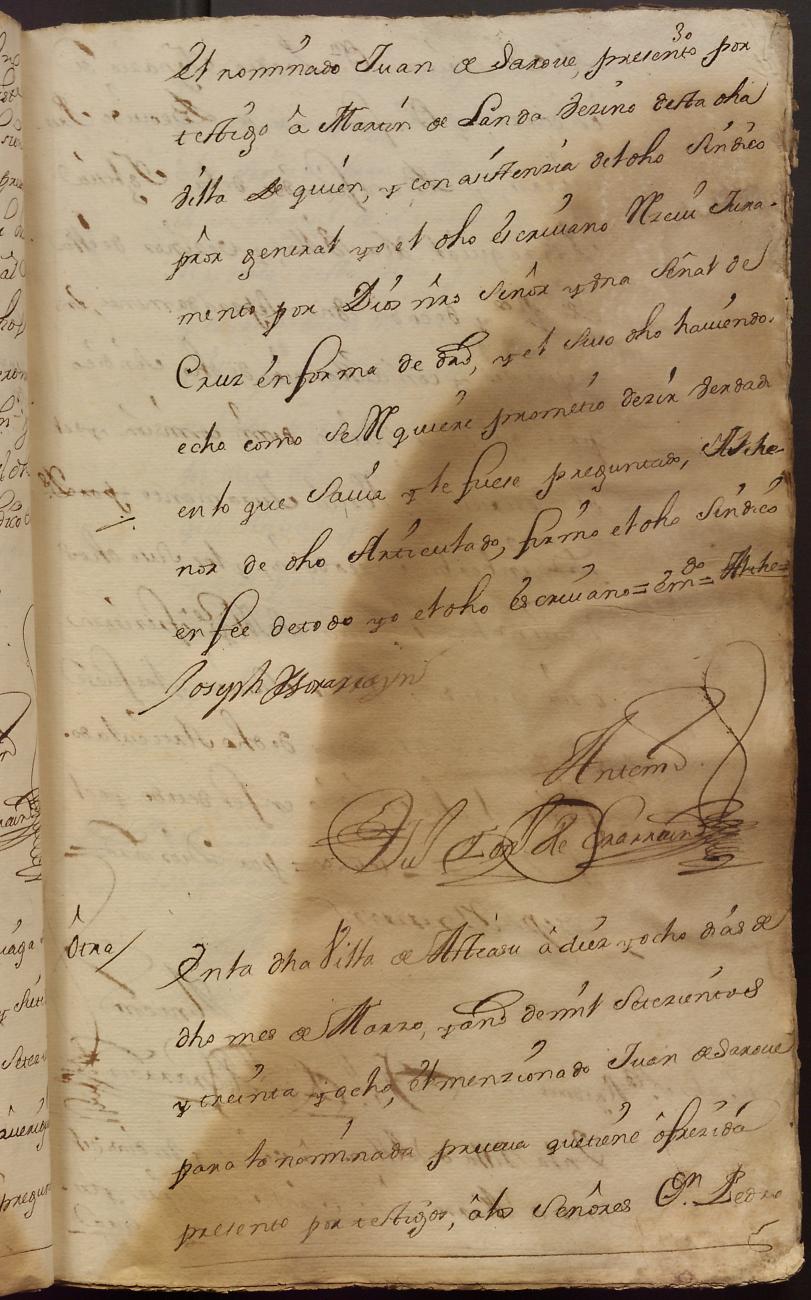 30
el nominado Juan de Sarove, presento por
testigo â Martin de Landa vezino desta dha
villa de quien, y con asistenzia del dho Sindico
prôr general yo el dho escriuano Rzeui Jura-
mento por Dios nrô Señor y vna Señal de
Cruz en forma de drô, y el suso dho hauiendo
echo como se Rquiere prometio dezir verdad
en lo que Sauia y le fuese preguntado, Al the-
nor de dho Articulado, firmo el dho Sindico
en fee de todo yo el dho escriuano = emdo = Al the =
Joseph
Antemi
de Larrain
Otra /
En la dha Villa de Ateasu â diez y ocho dias de
dho mes de Marzo, y año de mil Setezientos
y treinta y ocho, el menzionado Juan de Sarove
para la nominada prueua que tiene ôfrezida
presento por testigos, â los Señores Dn. Pedro